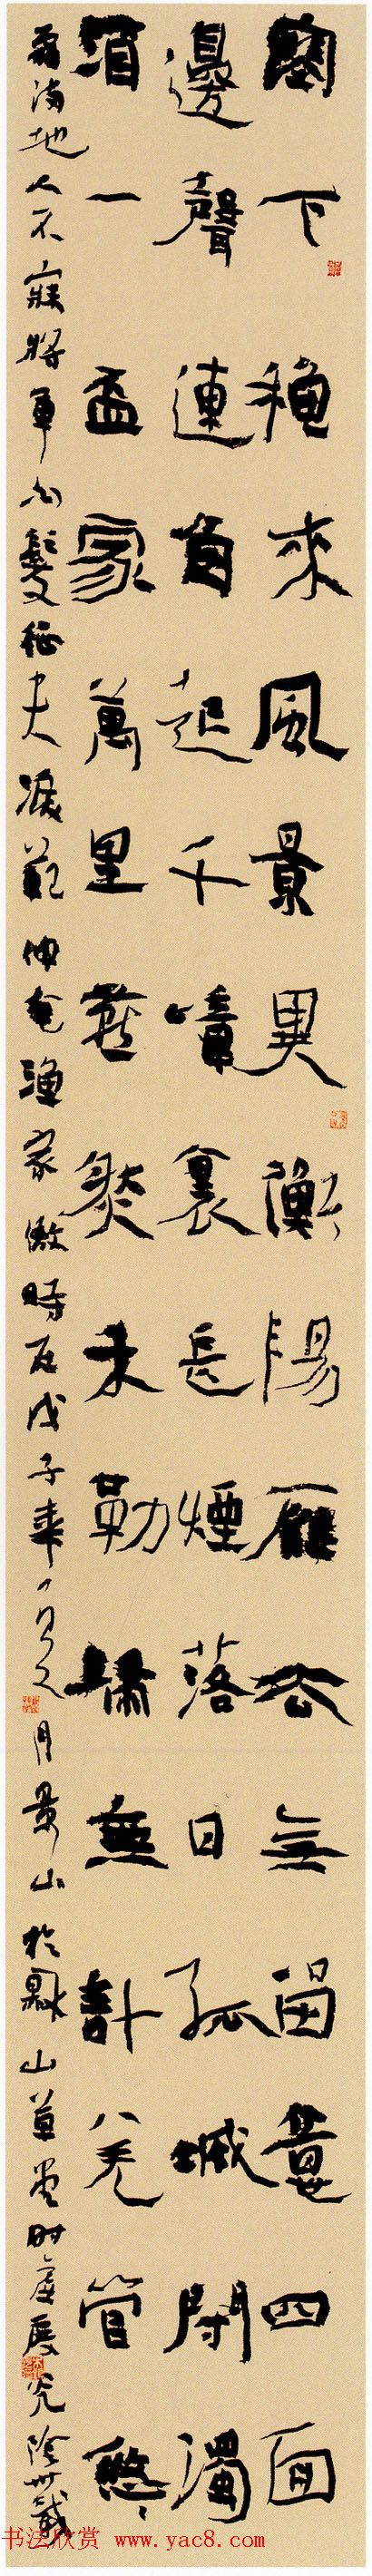 塞下穐來風景異衡陽雁去無留意四面
邊聲連角起千嶂裏長煙落日孤城閉濁
酒一盃家萬里燕然未勒歸無計羌管悠〻
霜滿地人不寐將軍白髮征夫淚范仲淹漁家傲時在戊子春月景山於山草堂時虛度光陰卅載
书法欣赏 www.yac8.com